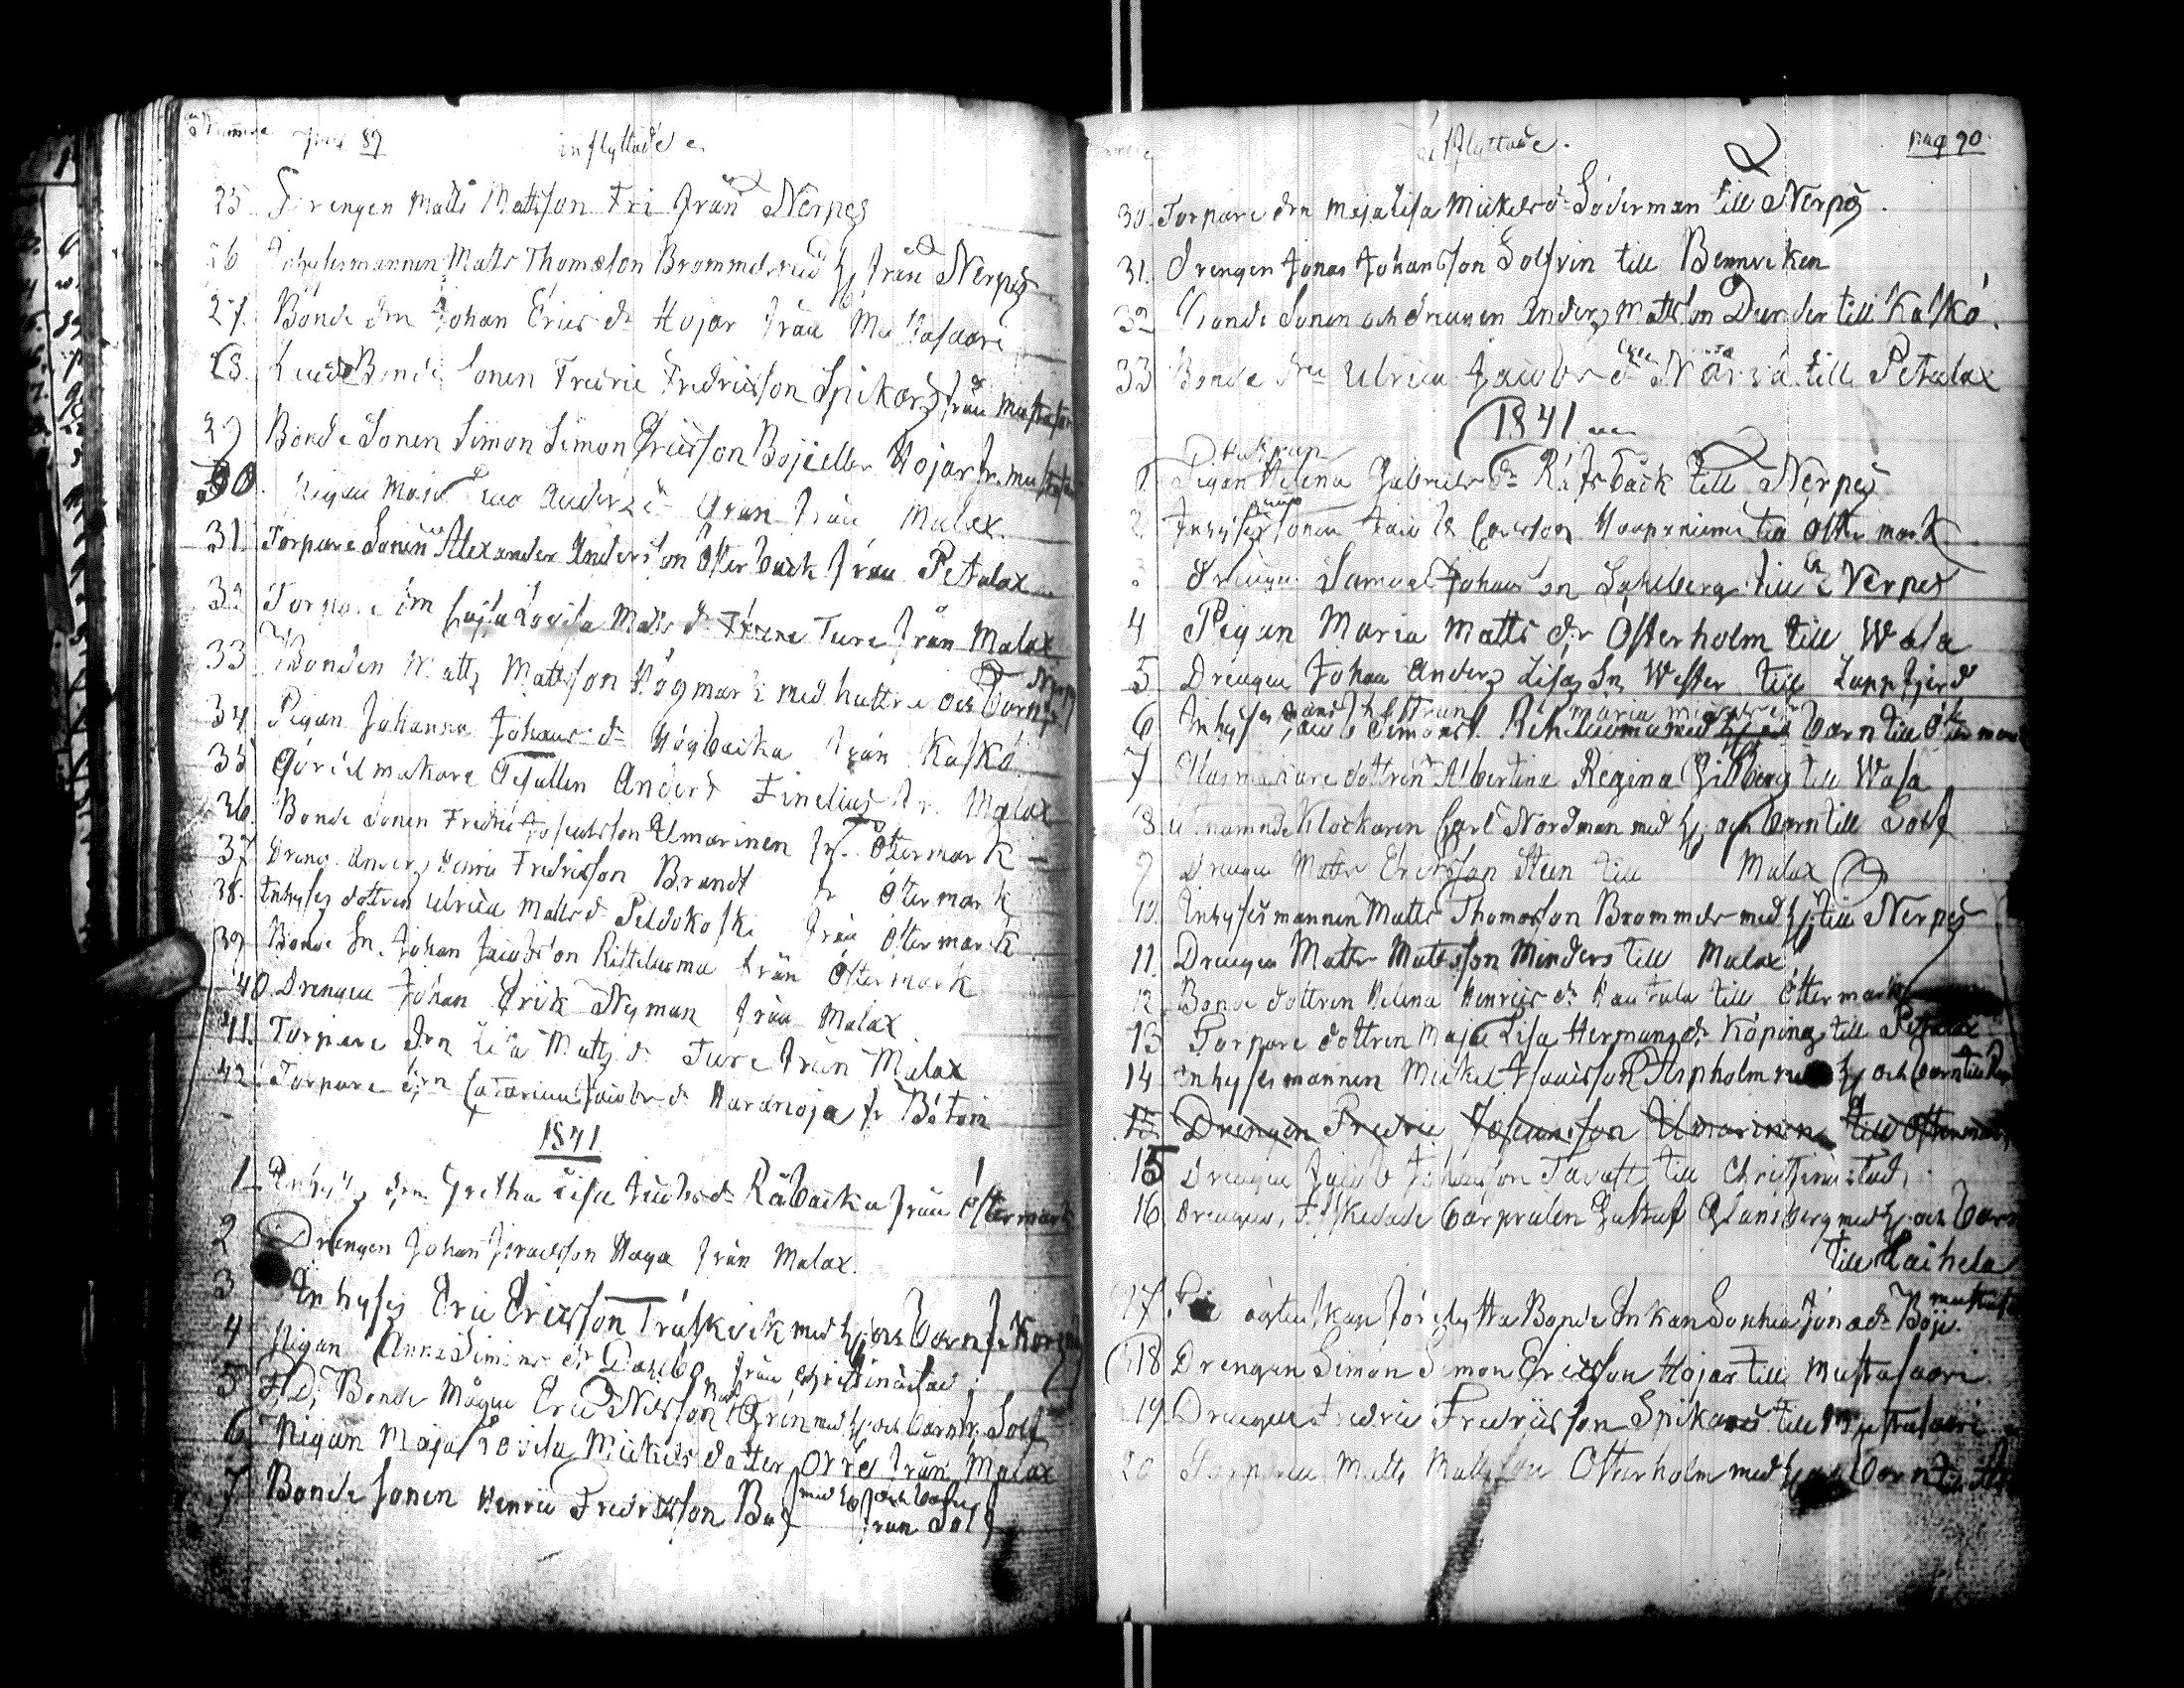 pag 89
inflyttade
25 Drengen Matts Mattsson Fri från Nerpes
26 Inhysesmannen Matts Thomasson Brommels med h från Nerpes
27. Bonde drn Johan Erics dr Hojar från Mustasaari
28. Bonde Sonen Fredric Fredricsson Spikars från Mustasar
29 Bonde Sonen Simon Simon Ericsson Böjeller Hojar fr. Mustasa
30. Pigan Maja Anders dr Gran från Malax.
31. Torpare Sonen Alexander Andersson Österback från Petalax
32 Torpare drn Cajsa Lovisa Matts dr Ture från Malax
33 Bonden Matts Mattsson Högmark med hustru och barn fr Nerp
34 Pigan Johanna Johans dr Högbacka från Kaskö.
35 Gesällen Anders Finelius fr. Malax
36. Bonde Sonen Fredric Josefsson Ilmarinen fr. Östermark
37 Dreng. Anders Henric Fredricsson Brandt fr Östermark
38. Inhyses dottren Ulrica Matts dr Peldokoski från Östermark
39 Bonde Sn. Johan Jacobsson Rittiluoma från Östermark
40 Drengen Johan Erik Nyman från Malax
41. Torpare drn Lisa Matts dr Ture från Malax
42. Torpare drn Catarina Jacobs dr Haranoja fr Bötom
1841
1 Inhyses drn Gretha Lisa Jacobs dr Råbacka från Östermark
2 Drengen Johan Israelsson Haga från Malax.
3 Inhyses Eric Ericsson Träskvik med h och barn fr Korsnäs
4 Pigan Anna Simons dr Dahlbo från Christinæstad
5 F. D. Bonde Mågen Eric Nilsson Grén med h och barn fr. Solf
6 Pigan Maja Lovisa Mickels dotter Orre från Malax
7 Bonde Sonen Henric Fredricsson Bag med h och barn
från Solf
utflyttade.
pag 90
30. Torpare drn Maja Lisa Mickels dr Söderman till Nerpes.
31. Drengen Jonas Johansson Solfvin till Bennviken
32 Bonde Sonen och drengen Anders Mattsson Dunder till Kaskö.
33 Bonde drn Ulrica Jacobs dr Närvä till Petalax
1841
1 Pigan Helena Gabriels dr Råfsbäck till Nerpes
2 Inhyses Sonen Jacob Ericsson Haapaniemi till Östermark
3 Drengen Samuel Johansson Sahlberg till Nerpes
4 Pigan Maria Matts dr Österholm till Wasa
5 Drengen Johan Anders Lisas Sn Wester till Lappfjerd
6 Inhyses Jacob Simons. Rihiluoma med h hustrun Maria och barn till Östermark
7 Glasmakare dottren Albertina Regina Gillberg till Wasa
8 utnämnde Klockaren Carl Nordman med h och barn till Solf
9 Drengen Matts Ericsson Steen till Malax
10. Inhyses mannen Matts Thomasson Brommels med h till Nerpes
11. Drengen Matts Mattsson Minders till Malax
12. Bonde dottren Helena Henrics dr Hautala till Östermark
13 Torpare dottren Maja Lisa Hermans dr Köping till Petalax
14 Inhyses mannen Mickel Isacsson Aspholm med h och barn till
15 Drengen Fredric Josefsson Ilmarinen till Östermark
15 Drengen Jacob Johansson Tavast till Christinestad
16 Drengen, afskedade Corpralen Gustaf Glansberg med h och barn
till Laihela
17. förflyttta Bonde Enkan Sophia Jonæ dr Böje. Mustasa
18 Drengen Simon Simon Ericsson Hojar till Mustasaari
19 Drengen Fredric Fredricsson Spikars till Mustasaari
20 Torparen Matts Mattsson Österholm med h och barn till